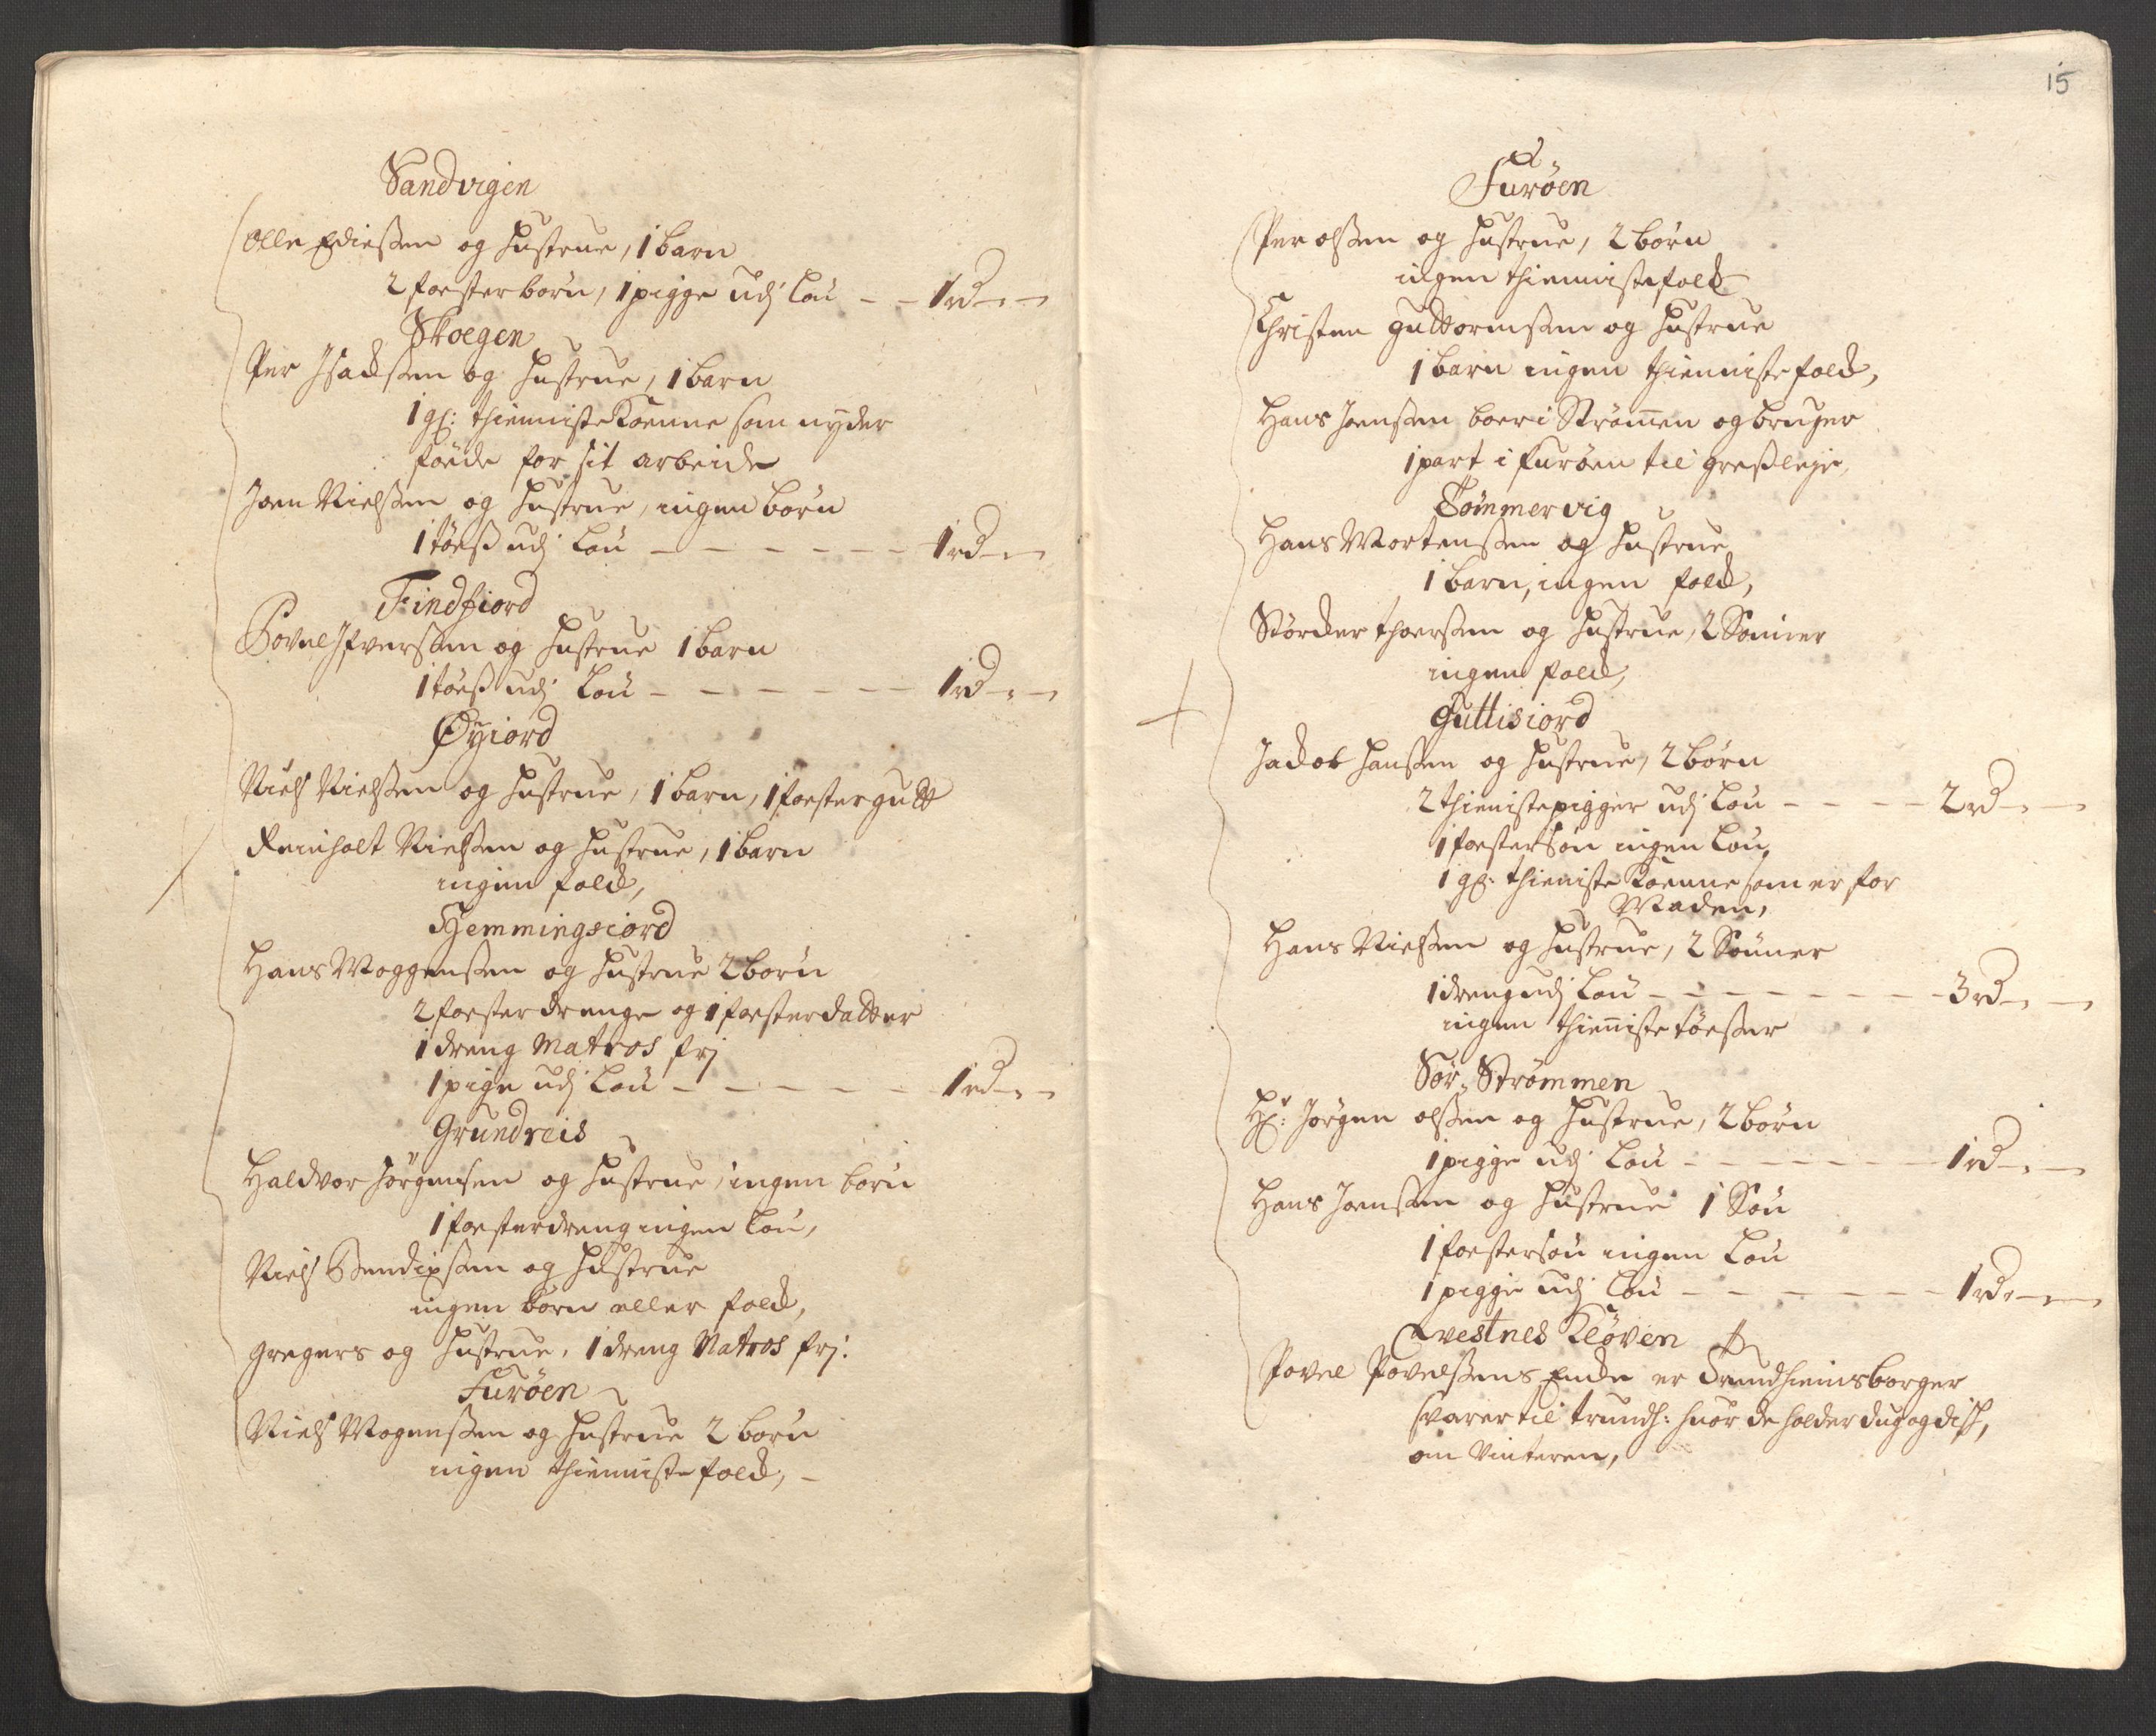 Sandvigen
Olle Ediessen og Hustrue, 1 barn
2 foesterbørn, 1 pigge udj Løn – – 1 rd – „ –
Skoegen
Per Isacksen og Hustrue, 1 barn
1 gl: thienniste Koenne som nyder
føede for sit arbeide
Joen Nielssen og Hustrue, ingen børn
1 tøeß udj Løn – – – – – – 1 rd – „ –
Findfiord
Povel Iversen og Hustrue 1 barn
1 tøeß udj Løn – – – – – – 1 rd – „ –
Øyiord
Niels Nielssen og Hustrue, 1 barn, 1 foestergutt
Reinholt Nielssen og Hustrue, 1 barn
ingen folck,
Hemmingsiord
Hans Moggenssen og Hustrue 2 børn
2 foesterdrenge og 1 foesterdatter
1 dreng Matros frj
1 pige udj Løn – – – – – 1 rd – „ –
Grundreis
Haldvor Jørgensen og Hustrue, ingen børn
1 foesterdreng ingen Løn,
Niels Bendixsen og Hustrue
ingen børn eller folck,
gregers og Hustrue, 1 dreng Matros frj:
Furøen
Niels Mogenssen og Hustrue 2 børn
ingen thienniste folck, –
15
Furøen
Per olssen og Hustrue, 2 børn
ingen thienniste folck
Christen guttormsen og Hustrue
1 barn ingen thienniste folck,
Hans Joensen boer i Strømen og bruger
1 part i furøen til greßleje,
Tømmervig
Hans Mortenssen og Hustrue
1 barn, ingen folck,
Størcker thoersen og Hustrue, 2 Sønner
ingen folck,
Guttisiord
Jackob Hanssen og Hustrue, 2 børn
2 thienistepigger udj Løn – – – – 2 rd – „ –
1 foestersøn ingen Løn,
1 gl: thieniste Koenne som er for
Maden,
Hans Nielssen og Hustrue, 2 Sønner
1 dreng udj Løn – – – – – – – 3 rd – „ –
ingen thieniste tøesser
Sør, Strømmen
Hr: Jørgen olssen og Hustrue, 2 børn
1 pigge udj Løn – – – – – – 1 rd – „ –
Hans Joensen og Hustrue 1 Søn
1 foestersøn ingen Løn
1 pigge udj Løn – – – – – – 1 rd – „ –
Qvestnes Kløven
Povel Povelssens Encke er Trundhiemsborger
svarer til trundh: huor de holder dug og disk,
om Vinteren,